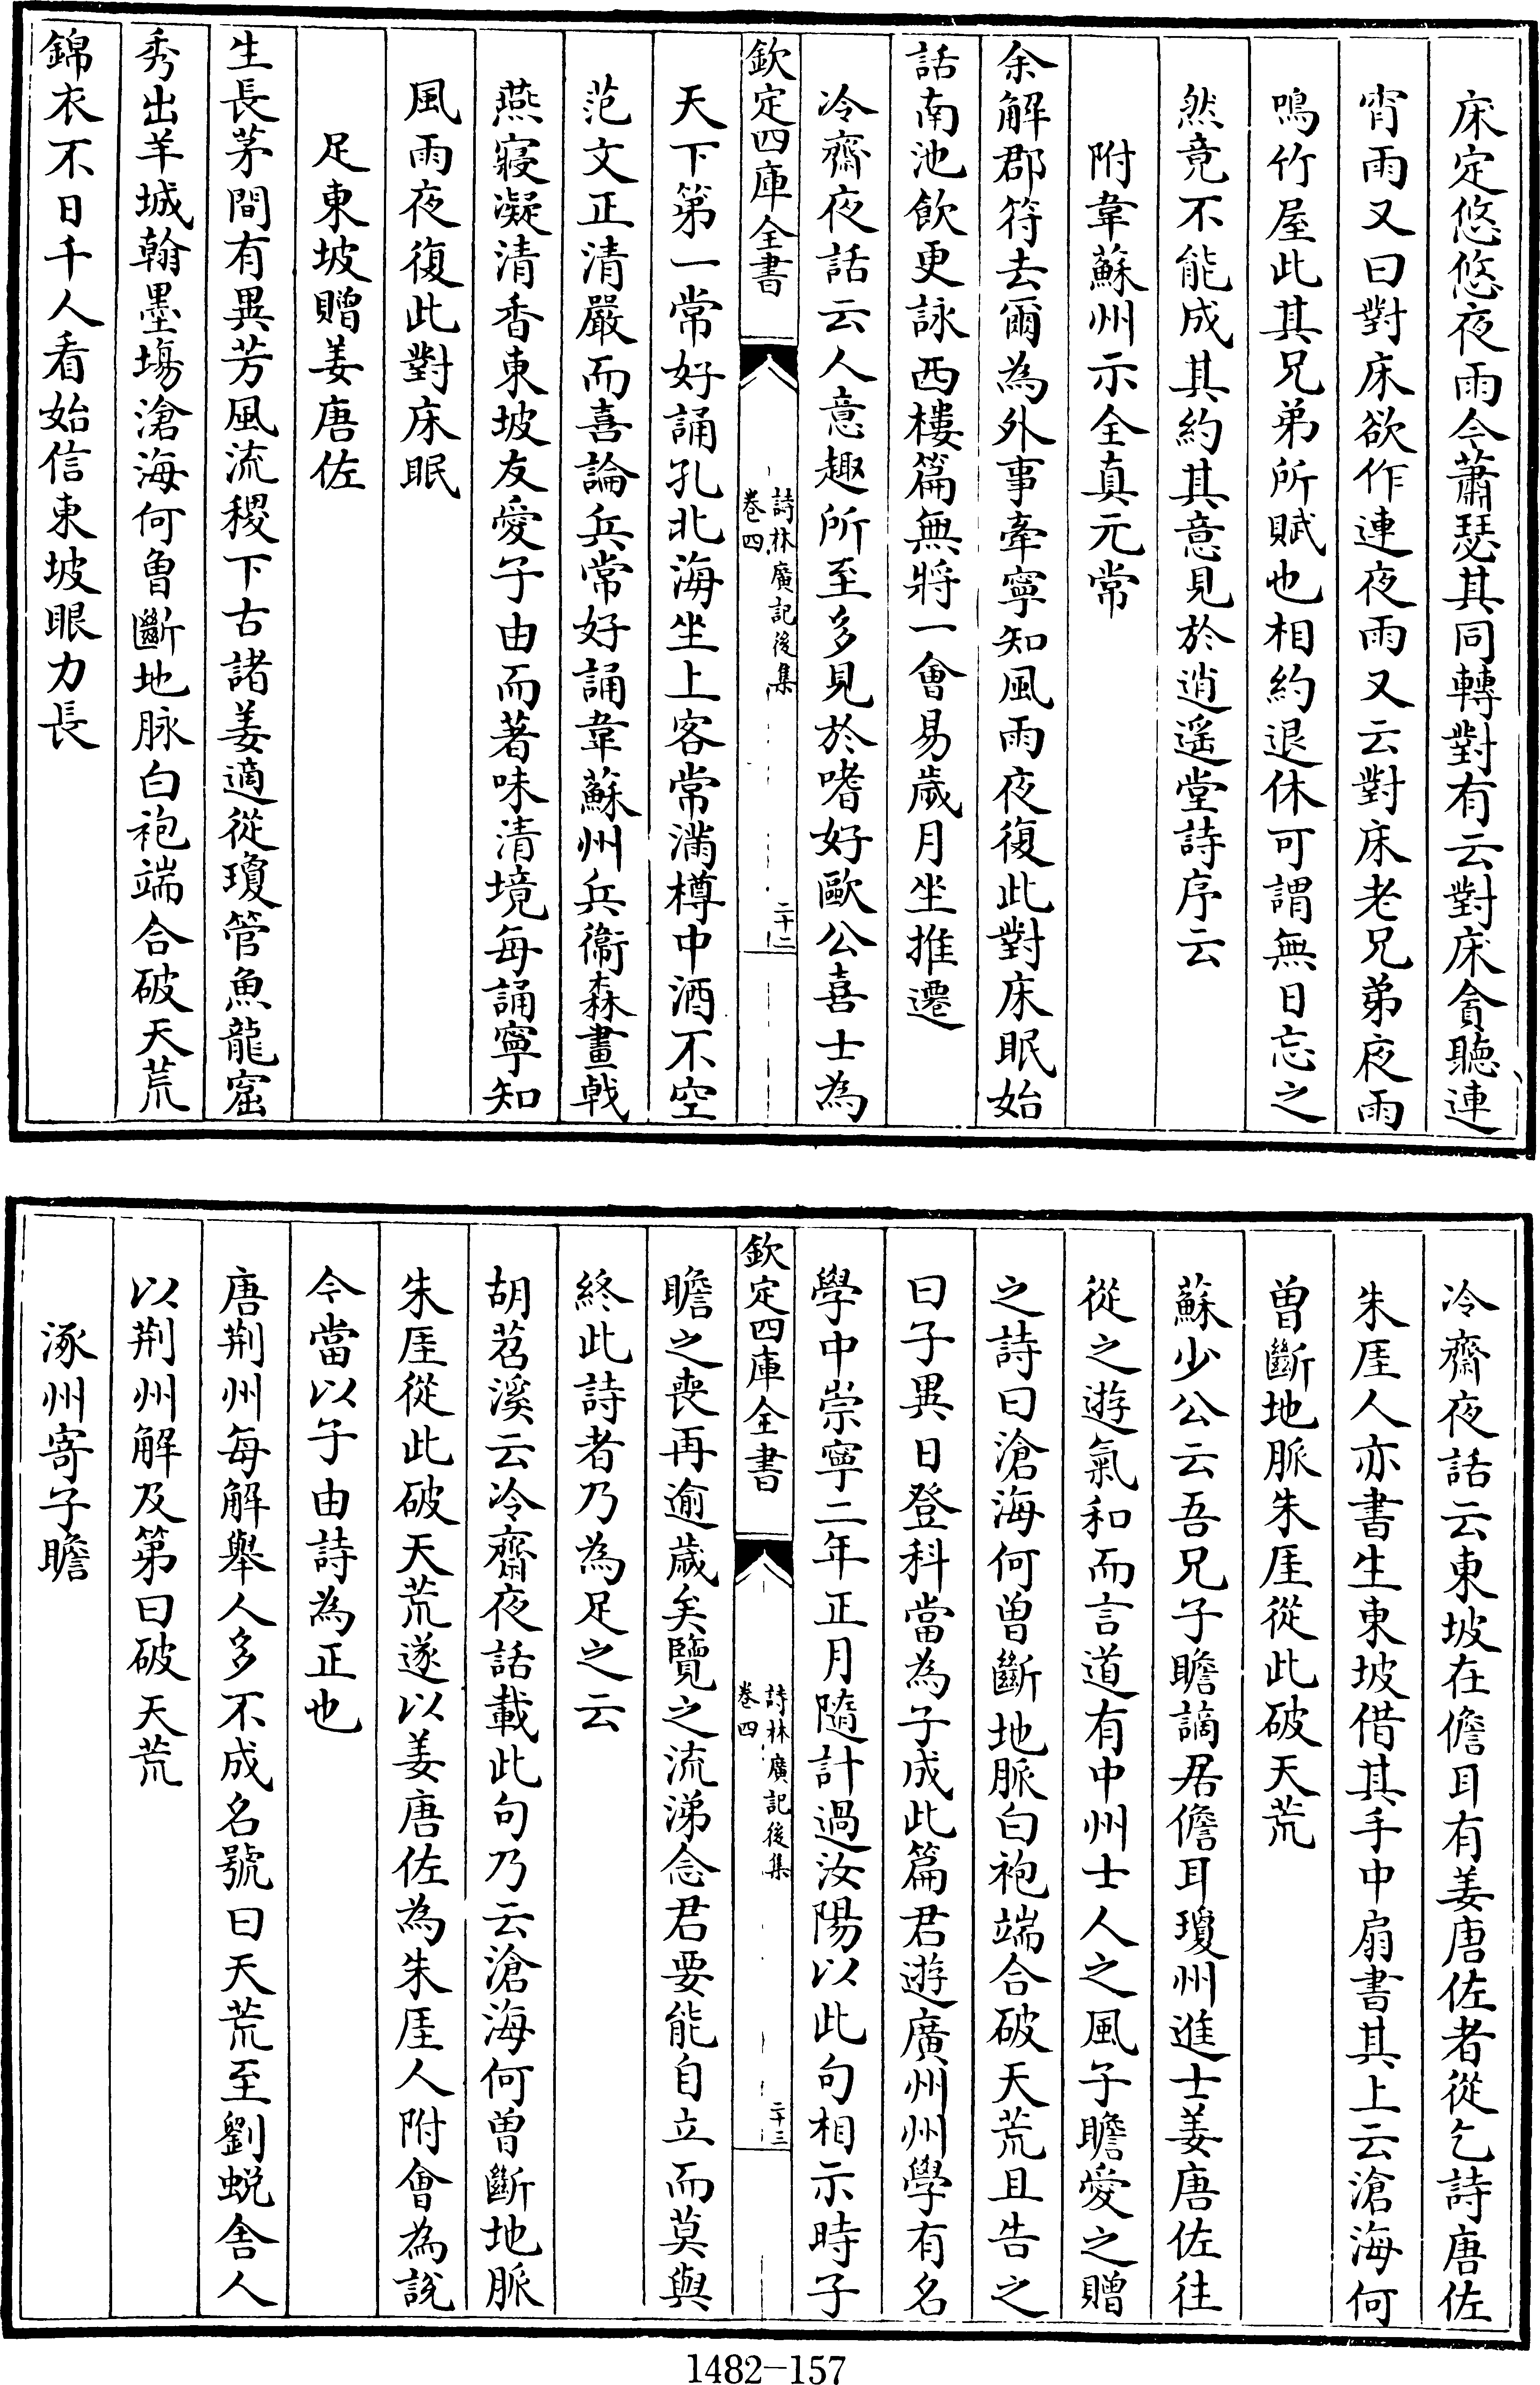 床定悠悠夜雨今蕭瑟其同轉對有云對床貪聽連
宵雨又曰對床欲作連夜雨又云對床老兄弟夜雨
鳴竹屋此其兄弟所賦也相約退休可謂無日忘之
然竟不能成其約其意見於逍遥堂詩序云
附韋蘇州示全真元常
余解郡符去爾為外事牽寧知風雨夜復此對床眠始
話南池飲更詠西樓篇無將一會易歲月坐推遷
冷齋夜話云人意趣所至多見於嗜好歐公喜士為
欽定四庫全書
詩林廣記後集
卷四
二十二
天下第一常好誦孔北海坐上客常滿樽中酒不空
范文正清嚴而喜論兵常好誦韋蘇州兵衞森畫戟
燕寢凝清香東坡友愛子由而著味清境每誦寧知
風雨夜復此對床眠
足東坡贈姜唐佐
生長茅間有異芳風流稷下古諸姜適從瓊管魚龍窟
秀出羊城翰墨塲滄海何曾斷地脉白袍端合破天荒
錦衣不日千人看始信東坡眼力長
冷齋夜話云東坡在儋耳有姜唐佐者從乞詩唐佐
朱厓人亦書生東坡借其手中扇書其上云滄海何
曾斷地脈朱厓從此破天荒
蘇少公云吾兄子瞻謫居儋耳瓊州進士姜唐佐往
從之遊氣和而言道有中州士人之風子瞻愛之贈
之詩曰滄海何曾斷地脈白袍端合破天荒且告之
曰子異日登科當為子成此篇君遊廣州州學有名
學中崇寧二年正月隨計過汝陽以此句相示時子
欽定四庫全書
詩林廣記後集
卷四
二十三
瞻之喪再逾歲矣覽之流涕念君要能自立而莫與
終此詩者乃為足之云
胡苕溪云冷齋夜話載此句乃云滄海何曾斷地脈
朱厓從此破天荒遂以姜唐佐為朱厓人附會為說
今當以子由詩為正也
唐荆州每解舉人多不成名號曰天荒至劉蛻舍人
以荆州解及第曰破天荒
涿州寄子瞻
1482-157